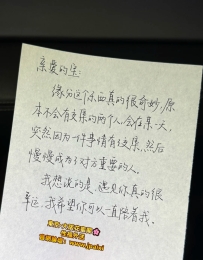 亲爱的宝:
缘分这个东西真的很奇妙,原
本不会有交集的两个人,会在某一天,
突然因为一件事情有交集,然后
慢慢成为了对方重要的人。
我想说的是,遇见你真的很
幸运,我希望你可以一直陪着我。